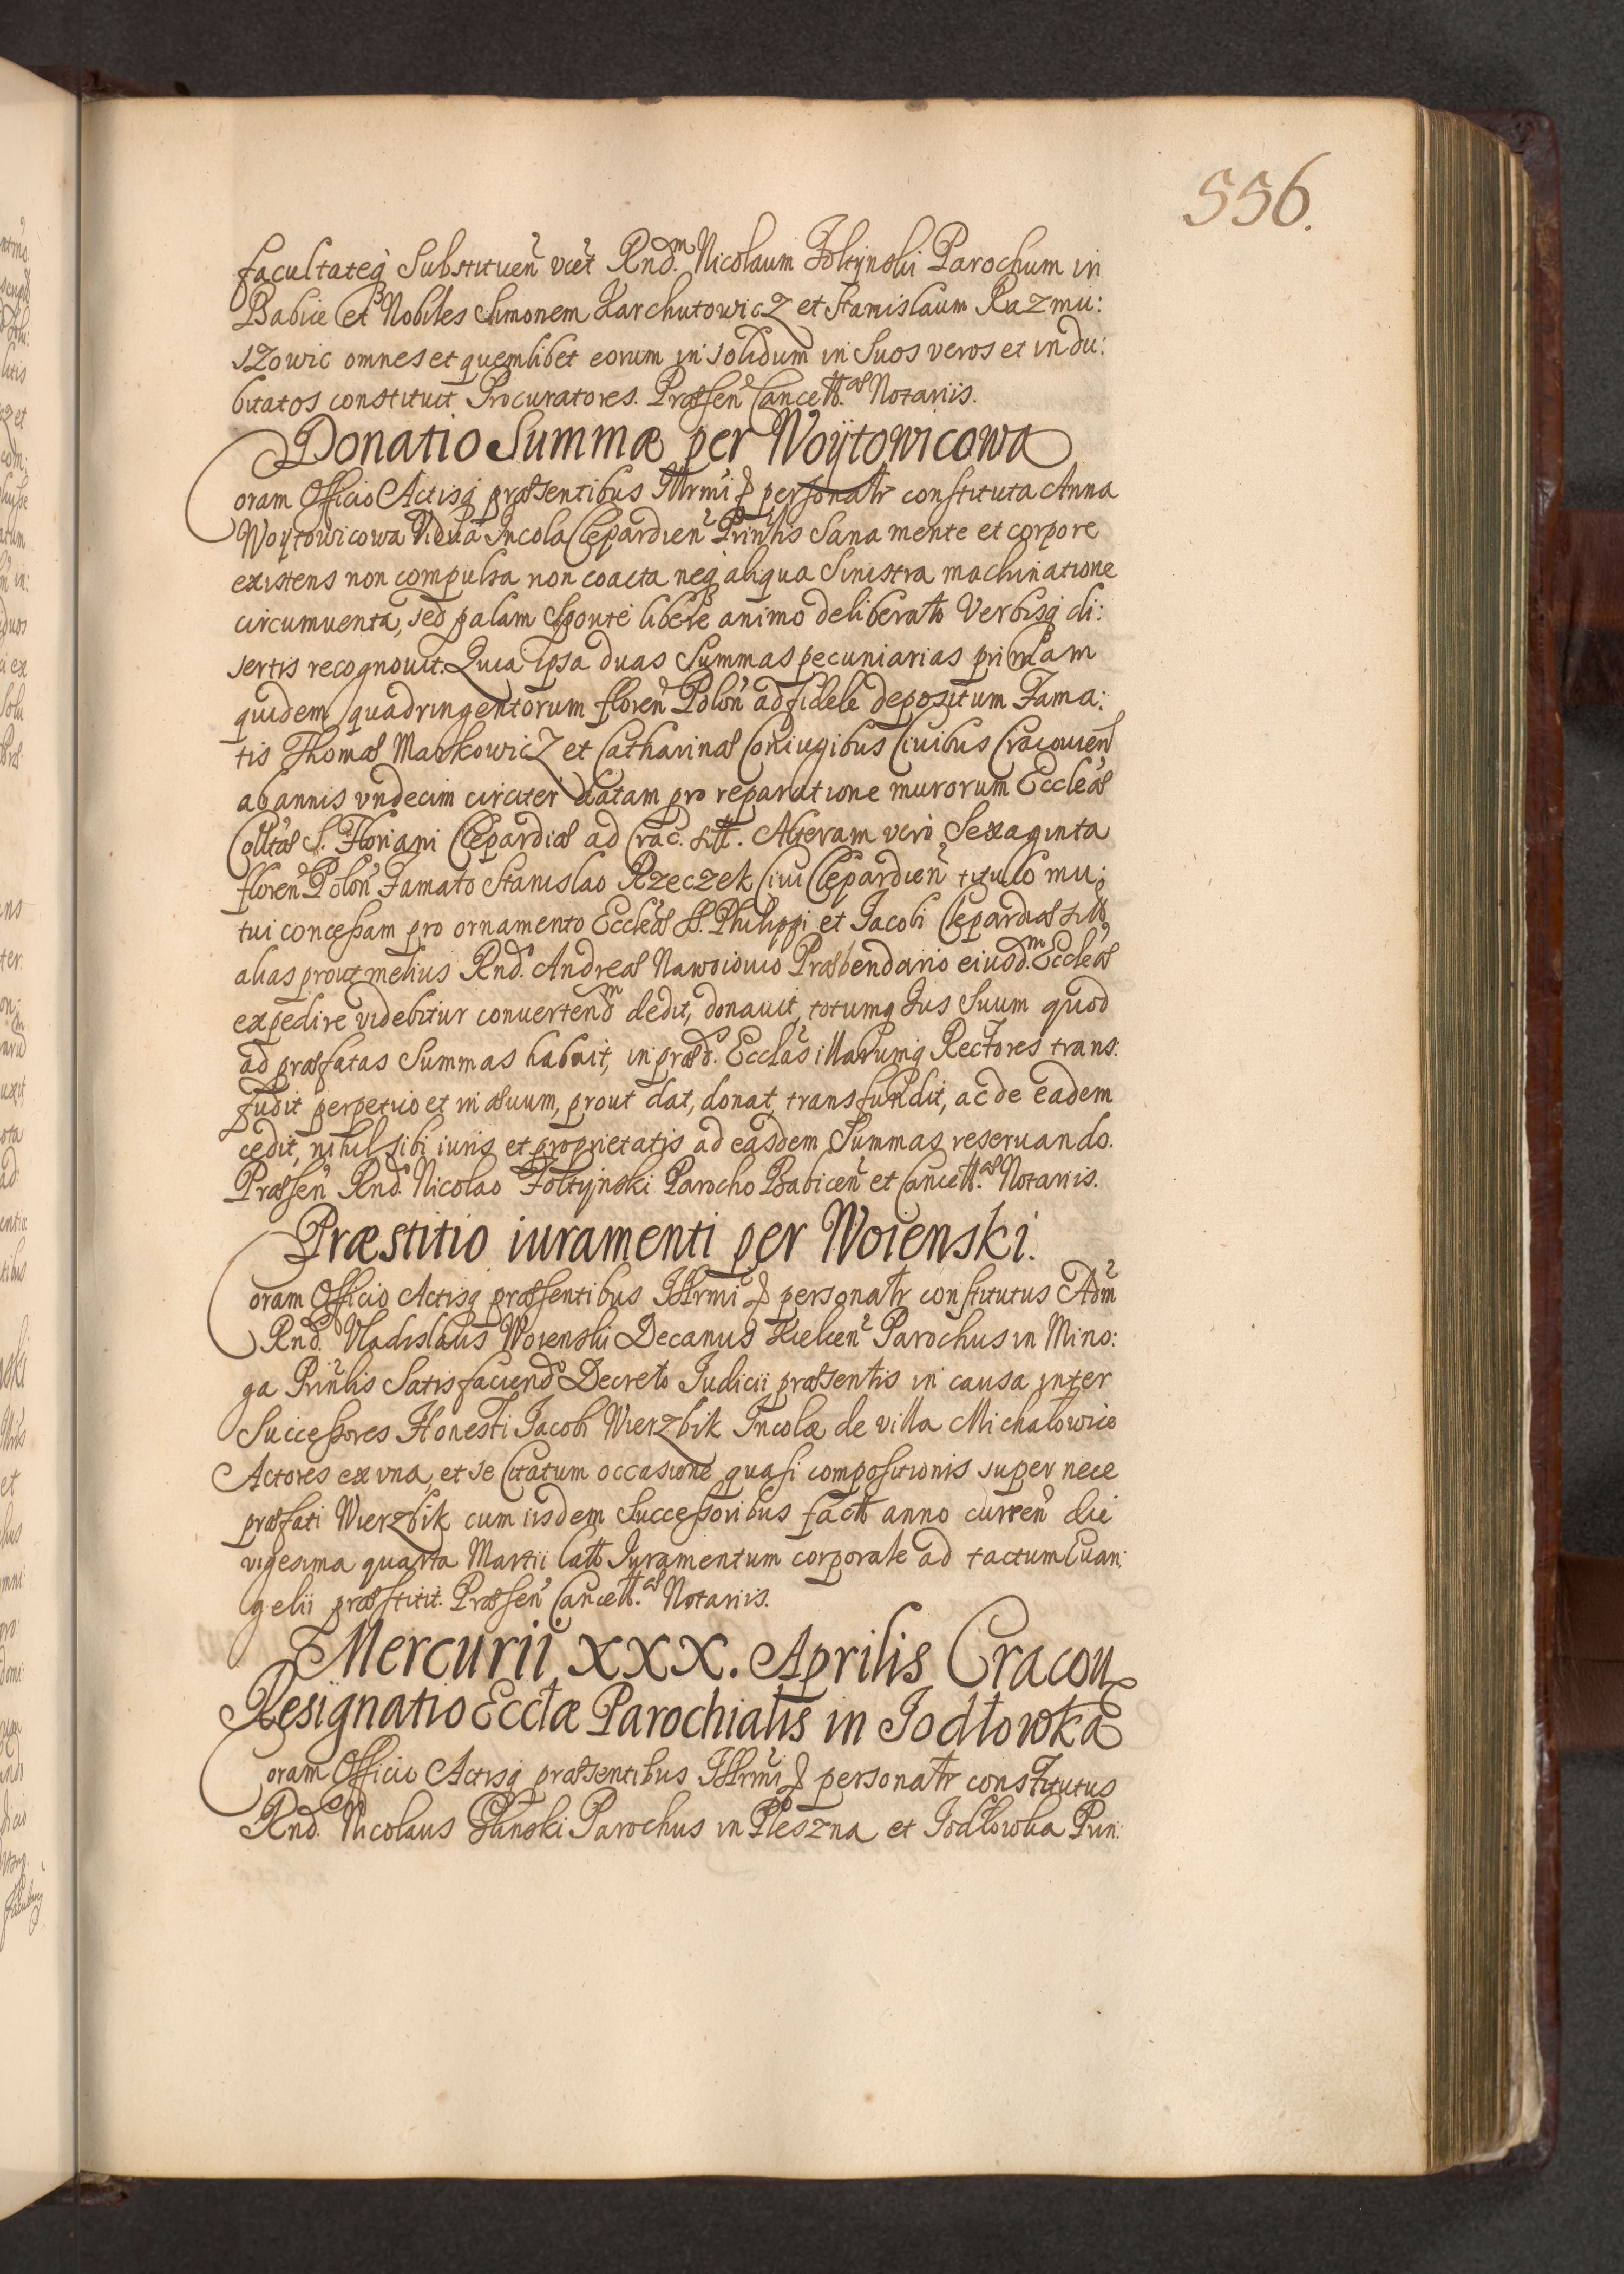 556.
facultateq̃ Substituen̄ vɛt Rnd.m Nicolaum Zołtynski Parochum in
Babice et Nobiles Simonem Karchutowicz et Stanislaum Kazmi:
szowic omnes et quemlibet eorum in solidum in Suos veros et indu:
bitatos constituit Procuratores. Præsen̄ Cancell.æ Notariis.
Donatio Summæ per Woÿtowicowa
Coram Officio Actisq̃ præsentibus Illrmi & personalr constituta Anna
Woytowicowa Vidua Incola Clepardien̄ Prinlis Sana mente et corpore
existens non compulsa non coacta neq̃ aliqua Sinistra machinatione
circumuenta, sed palam Sponte libere animo deliberato Verbisq̃ di:
sertis recognouit. Quia ipsa duas Summas pecuniarias primam
quidem quadringentorum floren̄ Polon̄ ad fidele depositum Fama:
tis Thomæ Maskowicz et Catharinæ Coniugibus Ciuibus Cracouien̄
ab annis vndecim circiter datam pro reparatione murorum Eccleæ
Colltæ S. Floriani Clepardiæ ad Crac. sitt. Alteram vero Sexaginta
floren̄ Polon̄ Famato Stanislao Rzeczek Ciui Clepardien̄ titulo mu:
tui concessam pro ornamento Eccleæ SS. Philippi et Jacobi Clepardiæ sitt,
alias prout melius Rnd. Andreæ Nawoiowic Præbendario eiusd.m Eccleæ
expedire videbitur conuertend.m dedit, donauit, totumq̃ Jus Suum quod
ad præfatas Summas habuit, in præd. Ecclãs illarumq̃ Rectores trans:
fudit perpetuo et in æuum, prout dat, donat, transfundit, ac de eadem
cedit, nihil sibi iuris et proprietatis ad easdem Summas reseruando.
Præsen̄ Rnd. Nicolao Zołtynski Parocho Babicen̄ et Cancell.æ Notariis.
Præstitio iuramenti per Woienski.
Coram Officio Actisq̃ præsentibus Illrmi & personalr constitutus Adm̄
Rnd. Vladislaus Woienski Decanus Kielcen̄ Parochus in Mino:
ga Prinlis Satisfaciend Decreto Judicii præsentis in causa inter
Successores Honesti Jacobi Wierzbik Incolæ de villa Michałowice
Actores ex vna, et se Citatum occasione quasi compositionis super nece
præfati Wierzbik cum iisdem Successoribus factt anno curren̄ die
vigesima quarta Martii latt Juramentum corporale ad tactum Euan:
gelii præstitit. Præsen̄ Cancell.æ Notariis.
Mercurii XXX. Aprilis Cracou
Resignatio Ecclæ Parochialis in Jodłowka
Coram Officio Actisq̃ præsentibus Illrmi & personalr constitutus
Rnd. Nicolaus Glinski Parochus in Pleszna et Jodłowka Prin: